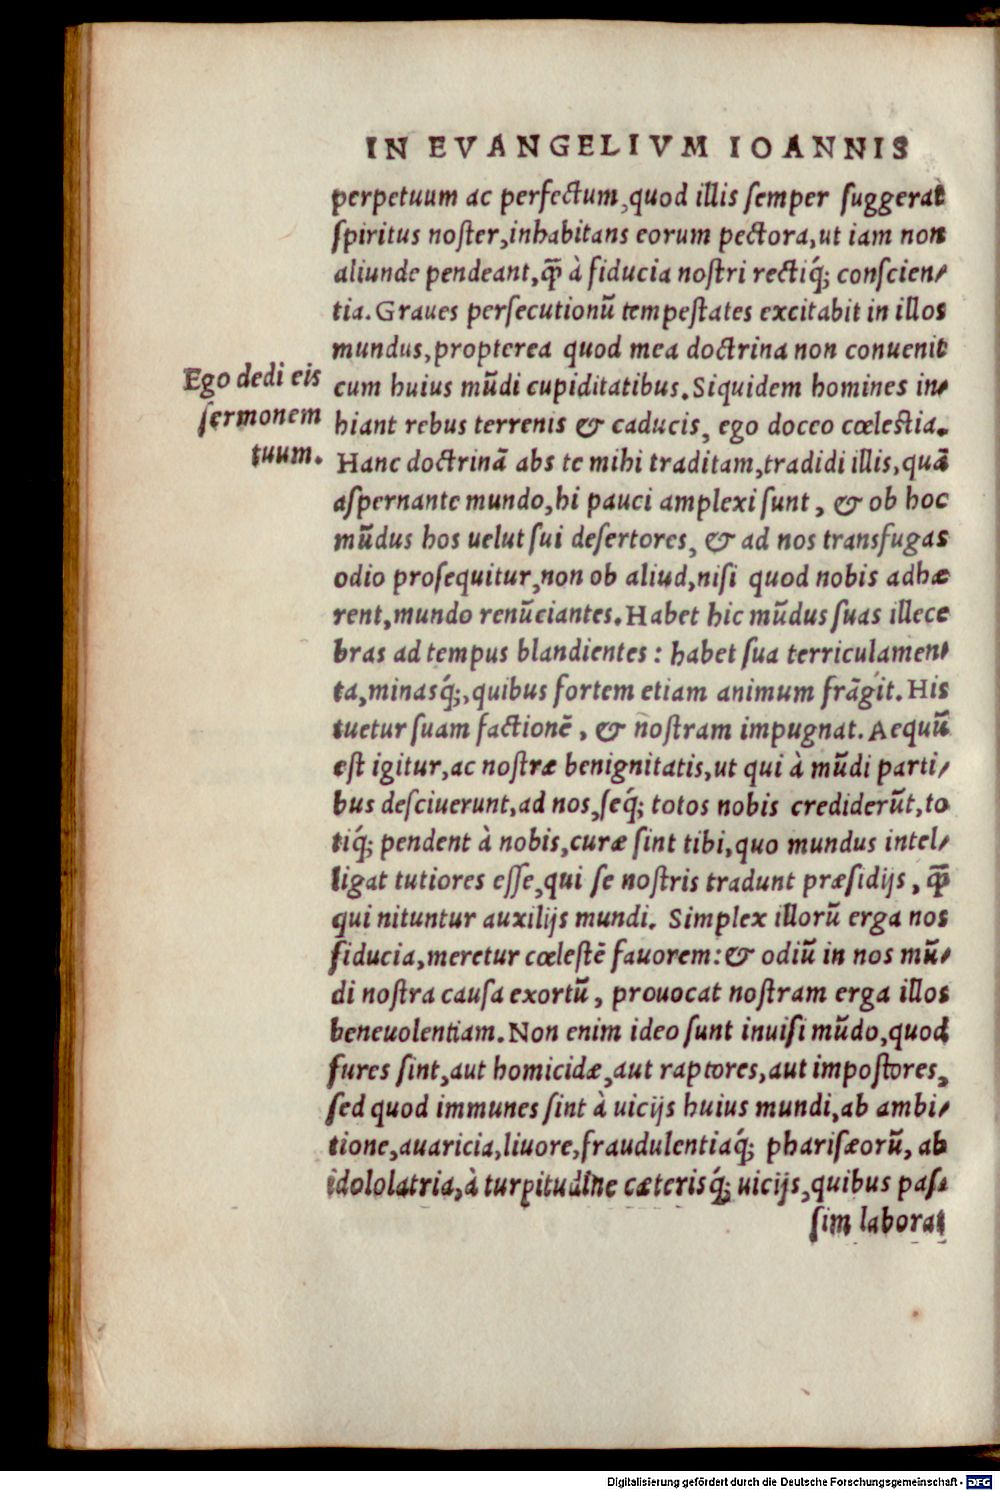 IN EVANGELIVM IOANNIS
perpetuum ac perfectum, quod illis ſemper ſuggerat
ſpiritus noſter, inhabitans eorum pectora, ut iam non
aliunde pendeant, q̃ à fiducia noſtri rectiq́; conſcien-
tia. Graues perſecutionũ tempeſtates excitabit in illos
mundus, propterea quod mea doctrina non conuenit
Ego dedi eis
ſermonem
tuum.
cum huius mũdi cupiditatibus. Siquidem homines in-
hiant rebus terrenis & caducis, ego doceo cœleſtia.
Hanc doctrinã abs te mihi traditam, tradidi illis, quã
aſpernante mundo, hi pauci amplexi ſunt, & ob hoc
mũdus hos uelut ſui deſertores, & ad nos transfugas
odio proſequitur, non ob aliud, niſi quod nobis adhæ
rent, mundo renũciantes. Habet hic mũdus ſuas illece
bras ad tempus blandientes: habet ſua terriculamen-
ta, minasq́;, quibus fortem etiam animum frãgit. His
tuetur ſuam factionẽ, & noſtram impugnat. Aequũ
eſt igitur, ac noſtræ benignitatis, ut qui à mũdi parti-
bus deſciuerunt, ad nos, ſeq́; totos nobis crediderũt, to
tiq́; pendent à nobis, curæ ſint tibi, quo mundus intel-
ligat tutiores eſſe, qui ſe noſtris tradunt præſidijs, q̃
qui nituntur auxilijs mundi. Simplex illorũ erga nos
fiducia, meretur cœleſtẽ fauorem: & odiũ in nos mũ-
di noſtra cauſa exortũ, prouocat noſtram erga illos
beneuolentiam. Non enim ideo ſunt inuiſi mũdo, quod
fures ſint, aut homicidæ, aut raptores, aut impoſtores,
ſed quod immunes ſint à uicijs huius mundi, ab ambi-
tione, auaricia, liuore, fraudulentiaq́; phariſæorũ, ab
idololatria, à turpitudine cæterisq́; uicijs, quibus paſ-
ſim laborat
Digitalisierung gefördert durch die Deutsche Forschungsgemeinschaft - DFG